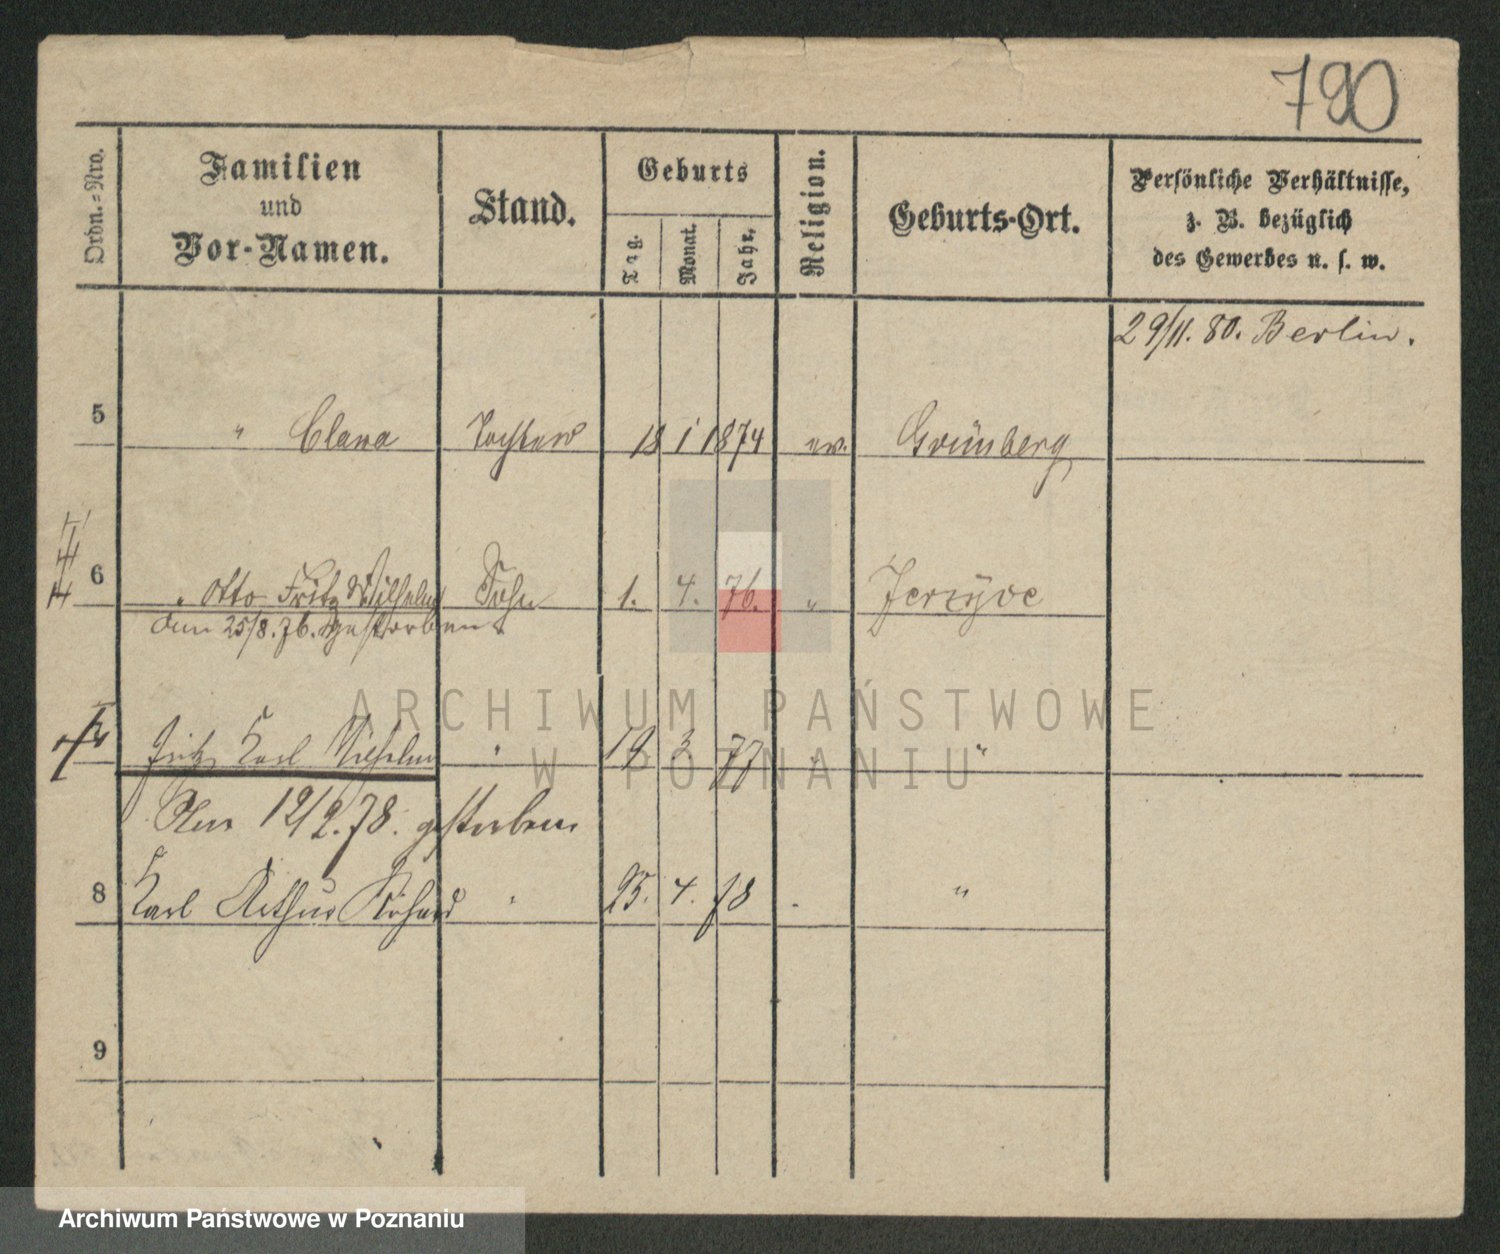 790
Ordn.=Nro.
Familien
und
Vor-Namen.
Stand.
Geburts
Tag.
Monat.
Jahr.
Religion.
Geburts-Ort.
Persönliche Verhältnisse,
z. B. bezüglich
des Gewerbes u. s. w.
29/11. 80. Berlin.
5 " Clara Tochter 18 1 1874 ev. Grünberg
6 " Otto Fritz Wilhelm Sohn 1. 4. 76. "
am 25/8. 76. gestorben
Fritz Karl Wilhelm " 19 3 77 "
Am 12/2. 78. gestorben
8 Karl Arthur Richard " 25. 4. 78 "
9
ARCHIWUM PAŃSTWOWE
W POZNANIU
Archiwum Państwowe w Poznaniu